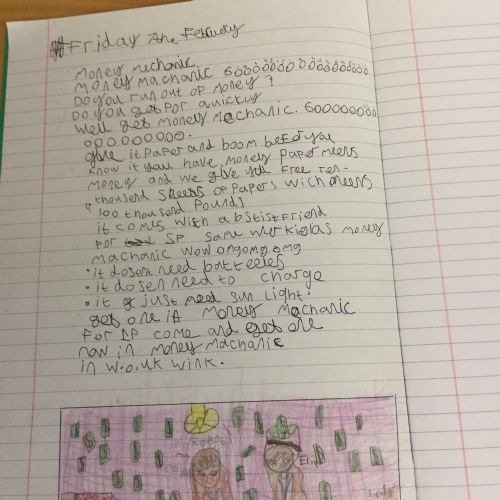 Friday 7the February
Money mechanic
Money machanic GOOOOOOO OOOOOOOOOO
Do you run out of money?
Do you get por quickly
Well get money mechanic. GOOOOOOOO
OOOOOOOOO.
give it paper and boom before you
know it you have money paper meens
money and we give you free ten-
thousand sheets of papers wich meens
100 thousand pounds
it comes with a bstistfriend
for 5p same werk as money
machanic wow omgomg omg
• it dosent need batteries
• it dosen need to charge
• it just need sun light.
get one in money mechanic
for 1p come and get one
now in money machanic
in w.o.uk wink.
ROBOT